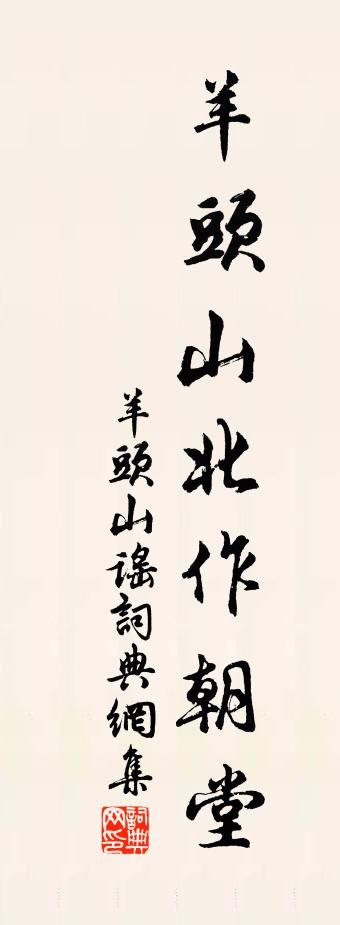 羊頭山北作朝堂
羊頭山謠詞典網集
詞典
网印